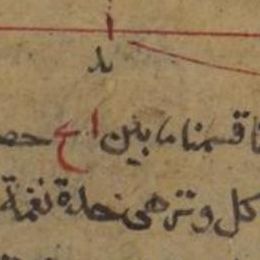 ىد
قسمنا ما بين ا ح
كل وتر هى حدة نغمة